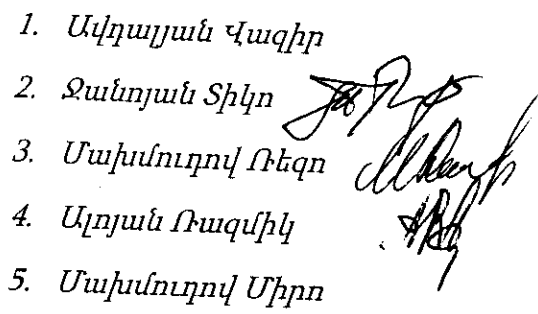 1. Ավդալյան Վազիր
2. Ջանոյան Տիկո
3. Մախմուդով Ռեզո
4. Ալոյան Ռազմիկ
5. Մախմուդով Միրո